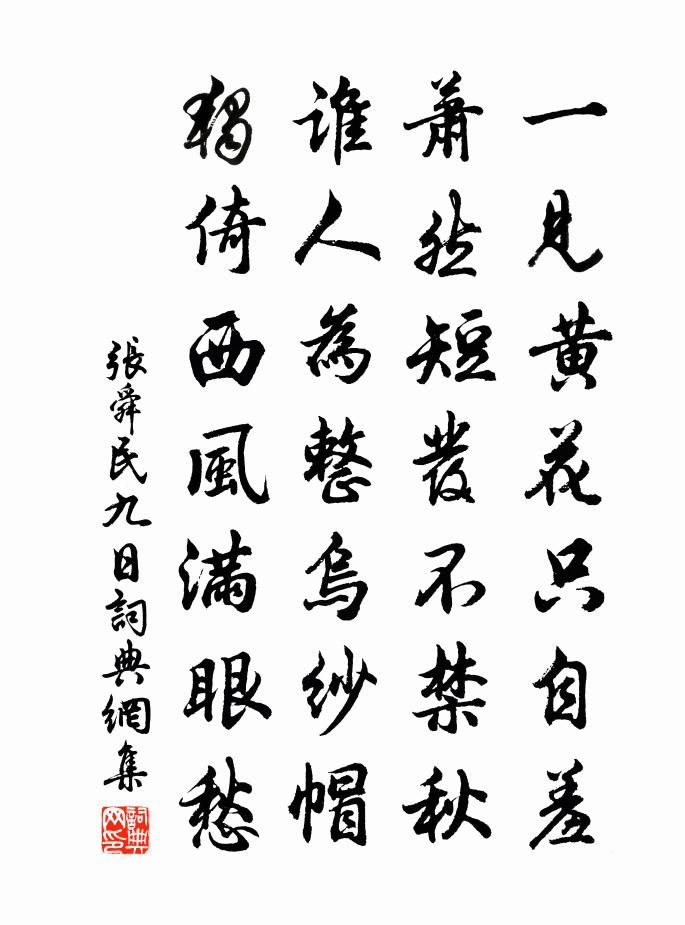 一見黃花只自羞
蕭然短發不禁秋
誰人為整烏紗帽
獨倚西風滿眼愁
張舜民九日詞典網集
詞典网印